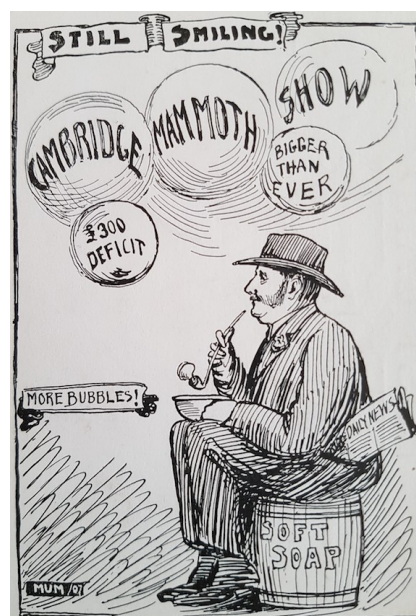 STILL SMILING!
CAMBRIDGE
MAMMOTH
SHOW
BIGGER
THAN
EVER
£300
DEFICIT
MORE BUBBLES!
DAILY NEWS
SOFT
SOAP
MUM /07